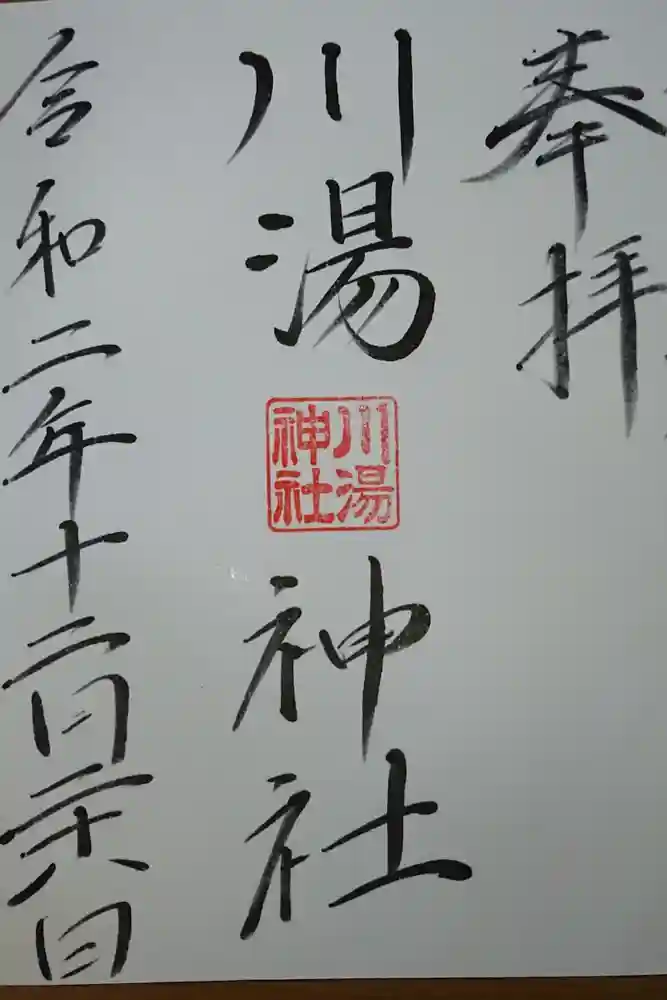 奉拝
川湯神社
川湯
神社
令和二年十二月二十八日